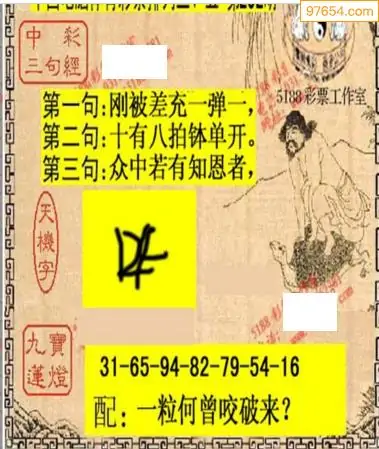 97654.com
中彩
三句經
5188彩票工作室
第一句:刚被差充一弹一,
第二句:十有八拍钵单开。
第三句:众中若有知恩者,
天機字
九寶
蓮燈
31-65-94-82-79-54-16
配:一粒何曾咬破来?